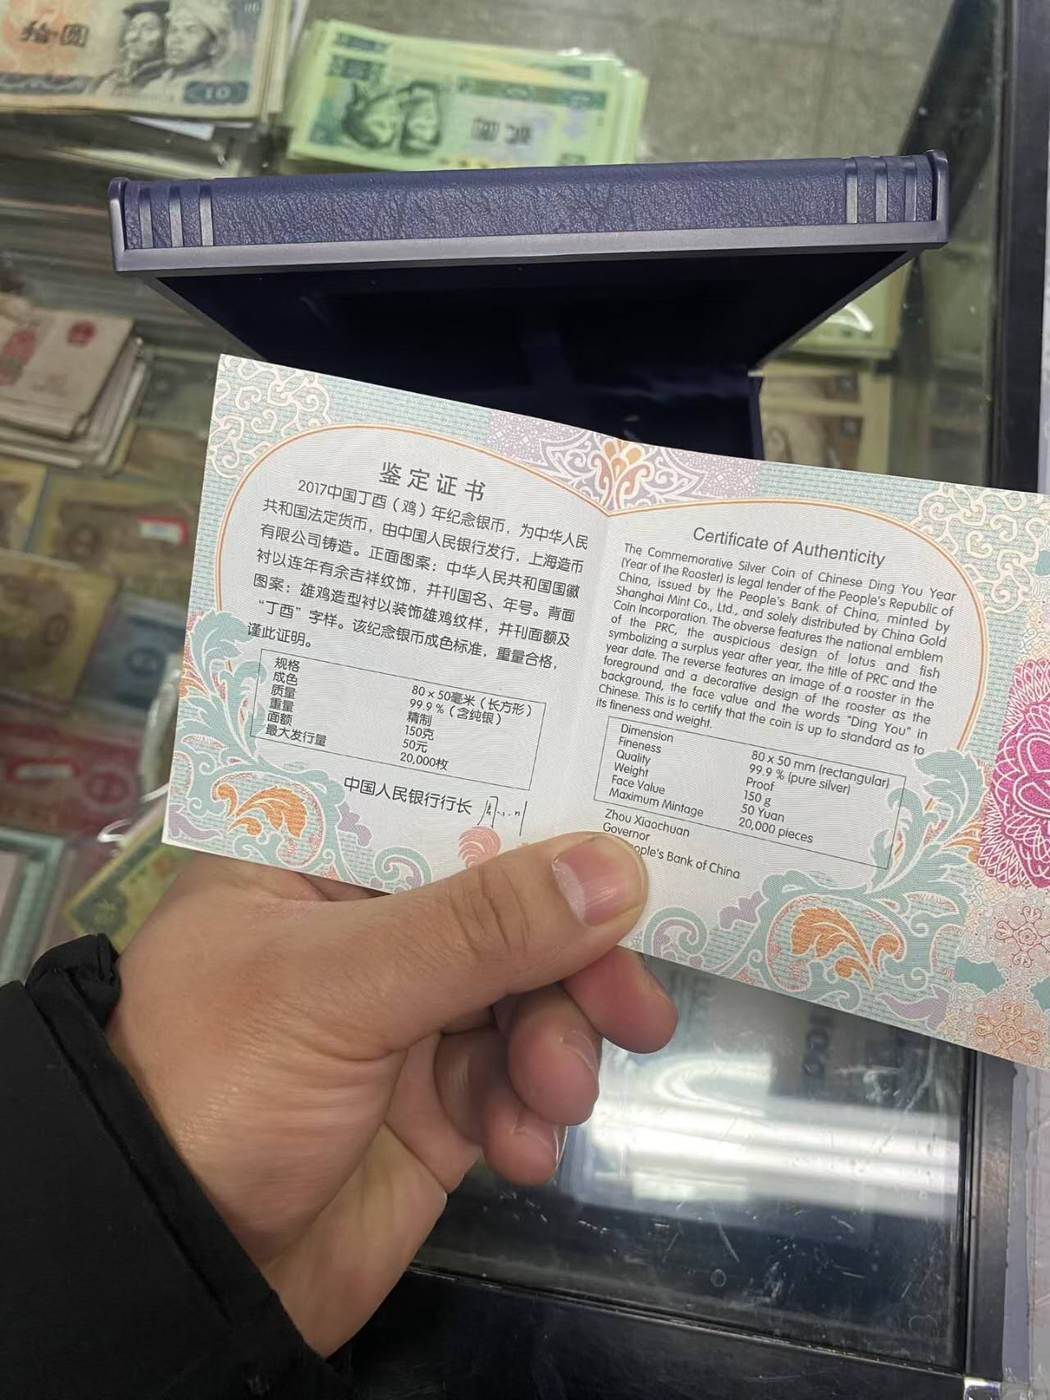 拾圆
10
鉴定证书
2017中国丁酉（鸡）年纪念银币，为中华人民
共和国法定货币，由中国人民银行发行，上海造币
有限公司铸造。正面图案：中华人民共和国国徽
衬以连年有余吉祥纹饰，并刊国名、年号。背面
图案：雄鸡造型衬以装饰雄鸡纹样，并刊面额及
“丁酉”字样。该纪念银币成色标准，重量合格，
谨此证明。
规格 80 x 50毫米（长方形）
成色 99.9 %（含纯银）
质量 精制
重量 150克
面额 50元
最大发行量 20,000枚
中国人民银行行长
Certificate of Authenticity
The Commemorative Silver Coin of Chinese Ding You Year
(Year of the Rooster) is legal tender of the People's Republic of
China, issued by the People's Bank of China, minted by
Shanghai Mint Co., Ltd., and solely distributed by China Gold
Coin Incorporation. The obverse features the national emblem
of the PRC, the auspicious design of lotus and fish
symbolizing a surplus year after year, the title of PRC and the
year date. The reverse features an image of a rooster in the
foreground and a decorative design of the rooster as the
background, the face value and the words "Ding You" in
Chinese. This is to certify that the coin is up to standard as to
its fineness and weight.
Dimension 80 x 50 mm (rectangular)
Fineness 99.9 % (pure silver)
Quality Proof
Weight 150 g
Face Value 50 Yuan
Maximum Mintage 20,000 pieces
Zhou Xiaochuan
Governor
ople's Bank of China